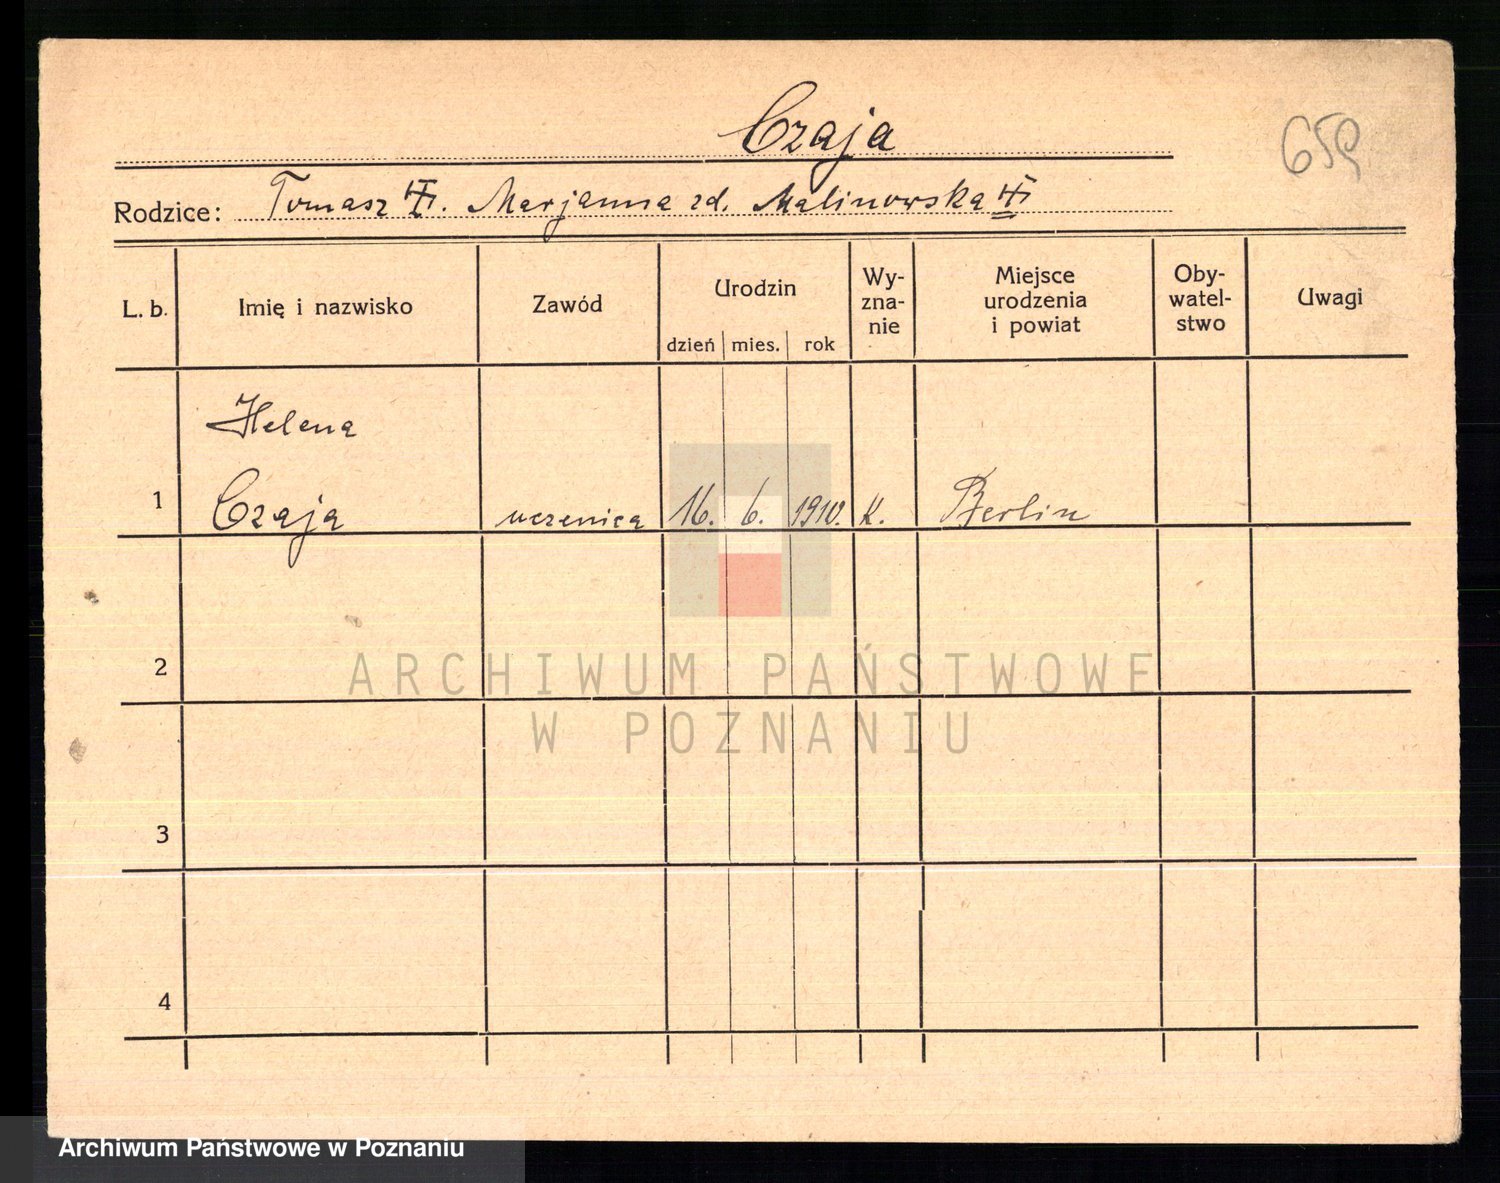 Czaja
659
Rodzice: Tomasz. Marjanna zd. Malinowska
L. b.
Imię i nazwisko
Zawód
Urodzin
dzień mies. rok
Wy-
zna-
nie
Miejsce
urodzenia
i powiat
Oby-
watel-
stwo
Uwagi
Helena
1 Czaja uczenica 16. 6. 1910. K. Berlin
2
ARCHIWUM PAŃSTWOWE
W POZNANIU
3
4
Archiwum Państwowe w Poznaniu